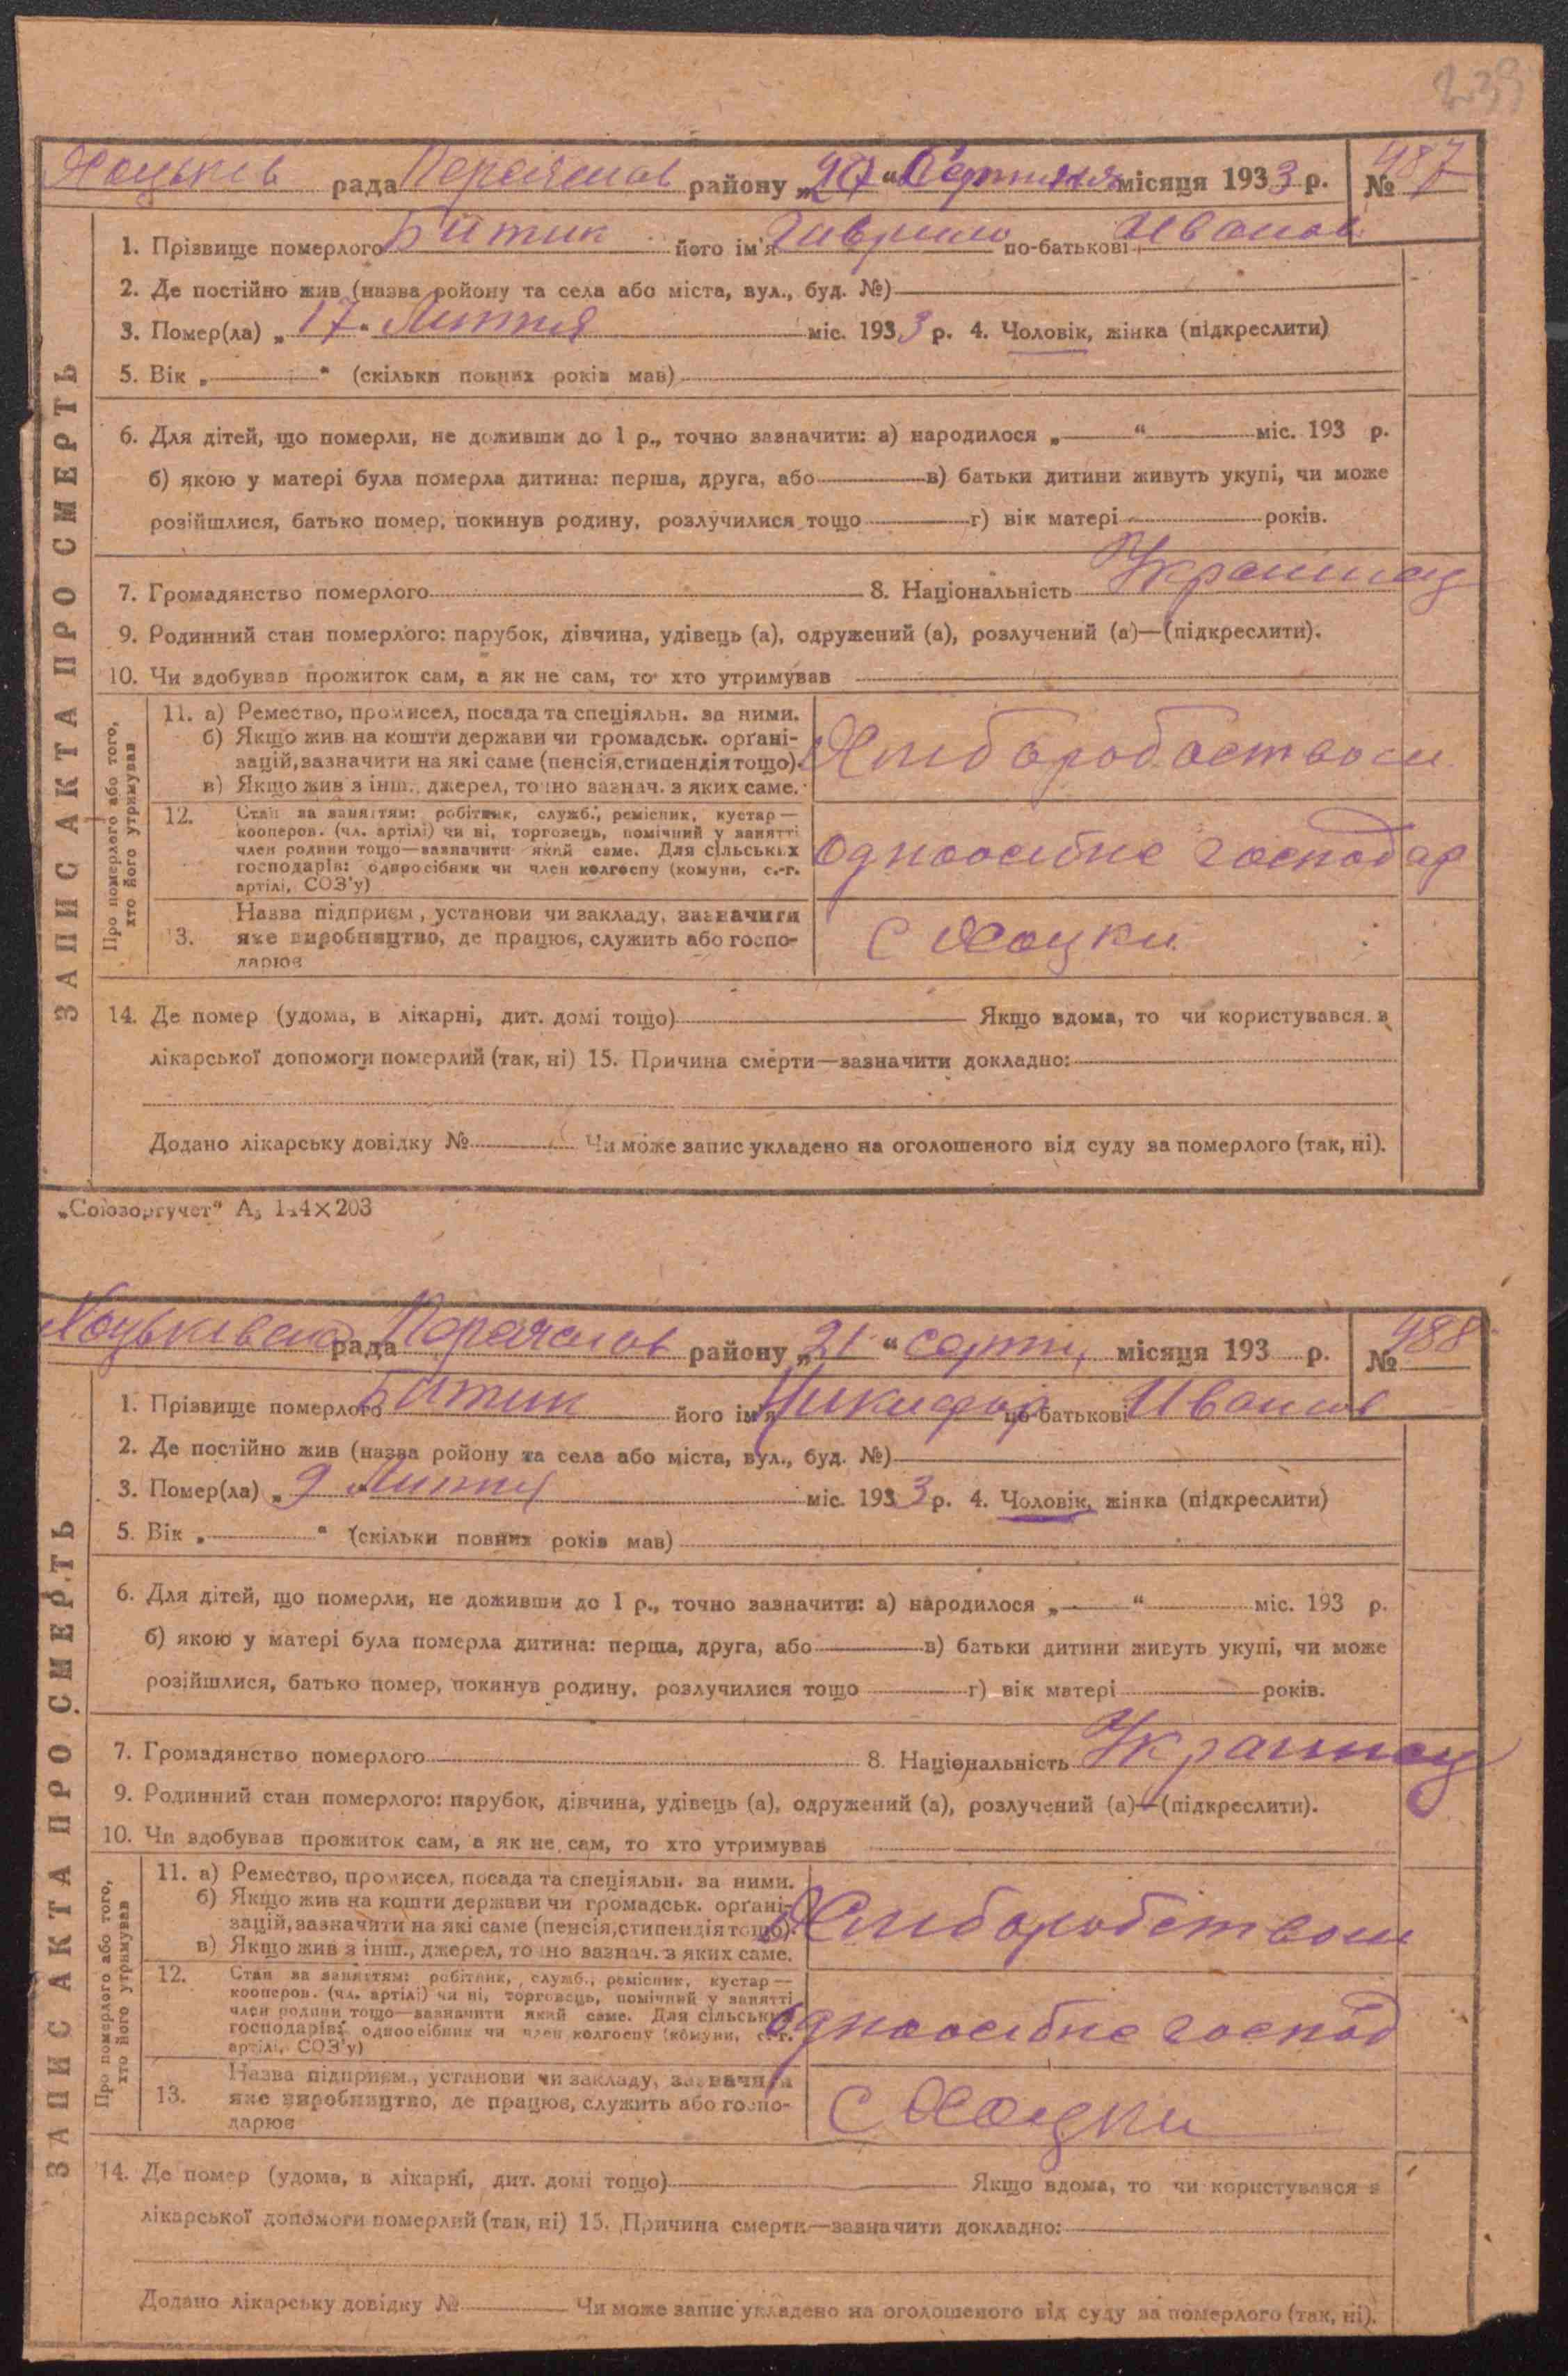 239
Хоцьків рада Переяслав району „20“ Серпня місяця 1933 р. № 487
1. Прізвище померлого Битик його ім'я Гаврило по-батькові Иванов
2. Де постійно жив (назва ройону та села або міста, вул., буд. №)
3. Помер(ла) „17“ Липня міс. 1933 р. 4. Чоловік, жінка (підкреслити)
5. Вік „ “ (скільки повних років мав)
6. Для дітей, що померли, не доживши до 1 р., точно зазначити: а) народилося „ “ міс. 193 р.
б) якою у матері була померла дитина: перша, друга, або в) батьки дитини живуть укупі, чи може
розійшлися, батько помер, покинув родину, розлучилися тощо г) вік матері років.
7. Громадянство померлого 8. Національність Украинец
9. Родинний стан померлого: парубок, дівчина, удівець (а), одружений (а), розлучений (а)—(підкреслити).
10. Чи здобував прожиток сам, а як не сам, то хто утримував
ЗАПИС АКТА ПРО СМЕРТЬ
Про померлого або того,
хто його утримував
11. а) Ремество, промисел, посада та спеціяльн. за ними.
б) Якщо жив на кошти держави чи громадськ. орґані-
зацій, зазначити на які саме (пенсія, стипендія тощо).
в) Якщо жив з інш., джерел, точно зазнач. з яких саме.
Хлиборобством
12. Стан за заняттям: робітник, служб., ремісник, кустар—
кооперов. (чл. артілі) чи ні, торговець, помічний у занятті
член родини тощо—зазначити який саме. Для сільських
господарів: одноосібник чи член колгоспу (комуни, с.-г.
артілі, СОЗ'у)
одноосибне господар
13. Назва підприєм., установи чи закладу, зазначити
яке виробництво, де працює, служить або госпо-
дарює
с Хоцки
14. Де помер (удома, в лікарні, дит. домі тощо) Якщо вдома, то чи користувався з
лікарської допомоги померлий (так, ні) 15. Причина смерти—зазначити докладно:
Додано лікарську довідку № Чи може запис укладено на оголошеного від суду за померлого (так, ні).
„Союзоргучет“ А₅ 144×203
Хоцьківська рада Переяслов району „21“ серпн, місяця 193 р. № 488
1. Прізвище померлого Битик його ім'я Никифор по-батькові Иванов
2. Де постійно жив (назва ройону та села або міста, вул., буд. №)
3. Помер(ла) „9 Липня міс. 1933 р. 4. Чоловік, жінка (підкреслити)
5. Вік „ “ (скільки повних років мав)
6. Для дітей, що померли, не доживши до 1 р., точно зазначити: а) народилося „ “ міс. 193 р.
б) якою у матері була померла дитина: перша, друга, або в) батьки дитини живуть укупі, чи може
розійшлися, батько помер, покинув родину, розлучилися тощо г) вік матері років.
7. Громадянство померлого 8. Національність Украинец
9. Родинний стан померлого: парубок, дівчина, удівець (а), одружений (а), розлучений (а)—(підкреслити).
10. Чи здобував прожиток сам, а як не сам, то хто утримував
ЗАПИС АКТА ПРО СМЕРТЬ
Про померлого або того,
хто його утримував
11. а) Ремество, промисел, посада та спеціяльн. за ними.
б) Якщо жив на кошти держави чи громадськ. орґані-
зацій, зазначити на які саме (пенсія, стипендія тощо).
в) Якщо жив з інш., джерел, точно зазнач. з яких саме.
Хлиборобством
12. Стан за заняттям: робітник, служб., ремісник, кустар—
кооперов. (чл. артілі) чи ні, торговець, помічний у занятті
член родини тощо—зазначити який саме. Для сільських
господарів: одноосібник чи член колгоспу (комуни, с.-г.
артілі, СОЗ'у)
одноосибне господ
13. Назва підприєм., установи чи закладу, зазначити
яке виробництво, де працює, служить або госпо-
дарює
с Хоцки
14. Де помер (удома, в лікарні, дит. домі тощо) Якщо вдома, то чи користувався з
лікарської допомоги померлий (так, ні) 15. Причина смерти—зазначити докладно:
Додано лікарську довідку № Чи може запис укладено на оголошеного від суду за померлого (так, ні).